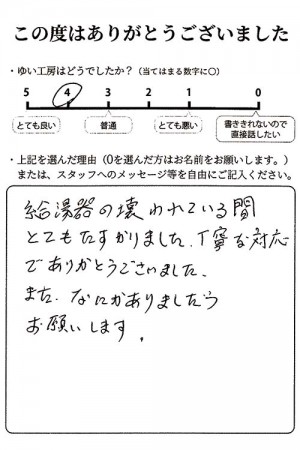 この度はありがとうございました
・ゆい工房はどうでしたか？（当てはまる数字に○）
5 4 3 2 1 0
とても良い 普通 とても悪い 書ききれないので直接話したい
・上記を選んだ理由（0を選んだ方はお名前をお願いします。）
または、スタッフへのメッセージ等を自由にご記入ください。
給湯器の壊われている間
とてもたすかりました。丁寧な対応
でありがとうございました。
また、なにかありましたら
お願いします。